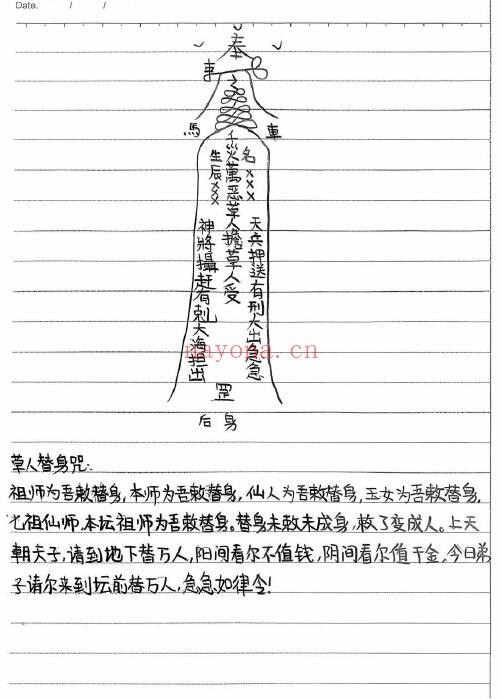 Date. / /
奉
車
馬 車
名×××
生辰×××
火萬惡草人擔草人受
天兵押送有刑大出急急
神將攝赶有剋大海担出
罡
后身
nayona.cn
草人替身咒:
祖师为吾敕替身,本师为吾敕替身,仙人为吾敕替身,玉女为吾敕替身,
七祖仙师,本坛祖师为吾敕替身。替身未敕未成身,敕了变成人。上天
朝夫子,请到地下替万人,阳间看尔不值钱,阴间看尔值千金,今日弟
子请尔来到坛前替万人,急急如律令!